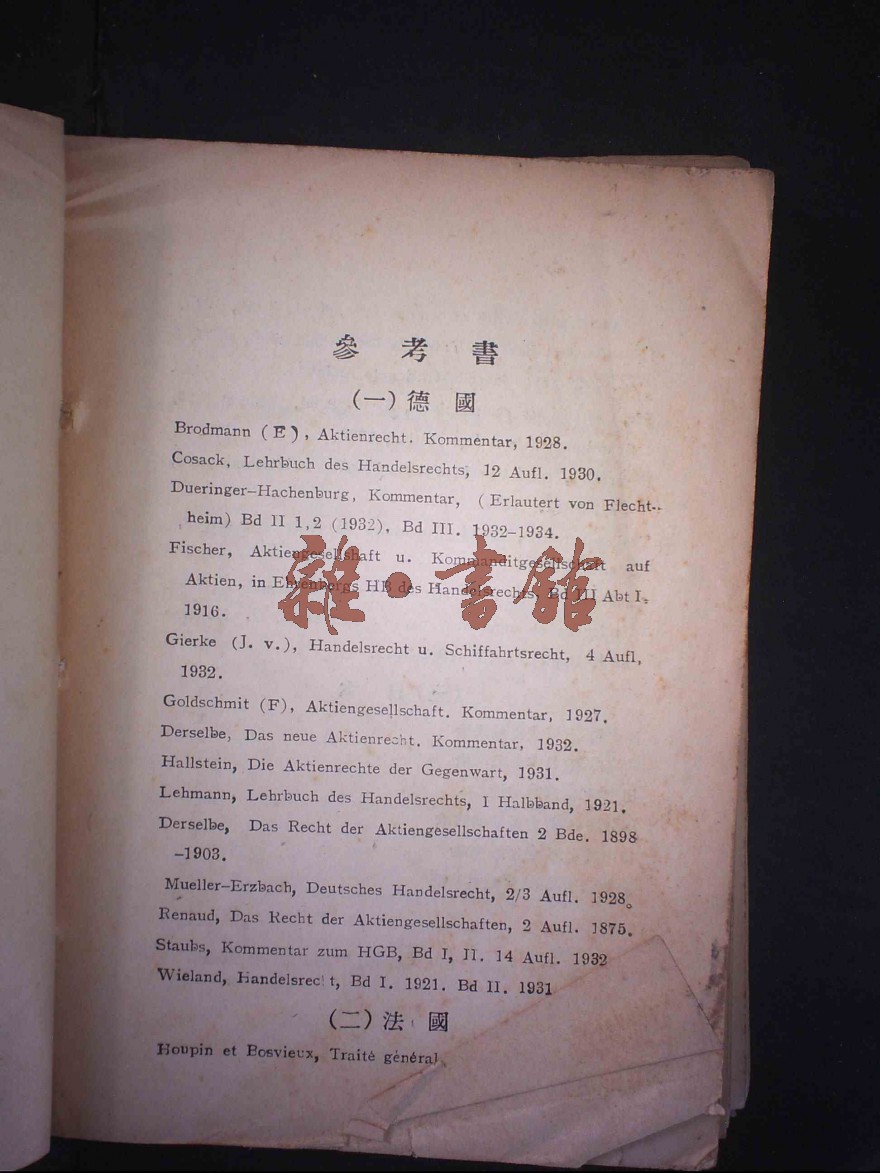 參考書
(一)德國
Brodmann (E), Aktienrecht. Kommentar, 1928.
Cosack, Lehrbuch des Handelsrechts, 12 Aufl. 1930.
Dueringer-Hachenburg, Kommentar, (Erlautert von Flecht-
heim) Bd II 1,2 (1932), Bd III. 1932-1934.
Fischer, Aktiengesellshaft u. Kommanditgesellschaft auf
Aktien, in Ehrenbergs HB des Handelsrechts, Bd III Abt I.
1916.
雜·書館
Gierke (J. v.), Handelsrecht u. Schiffahrtsrecht, 4 Aufl,
1932.
Goldschmit (F), Aktiengesellschaft. Kommentar, 1927.
Derselbe, Das neue Aktienrecht. Kommentar, 1932.
Hallstein, Die Aktienrechte der Gegenwart, 1931.
Lehmann, Lehrbuch des Handelsrechts, I Halbband, 1921.
Derselbe, Das Recht der Aktiengesellschaften 2 Bde. 1898
-1903.
Mueller-Erzbach, Deutsches Handelsrecht, 2/3 Aufl. 1928。
Renaud, Das Recht der Aktiengesellschaften, 2 Aufl. 1875.
Staubs, Kommentar zum HGB, Bd I, II. 14 Aufl. 1932
Wieland, Handelsrecht, Bd I. 1921. Bd II. 1931
(二)法國
Houpin et Bosvieux, Traité général